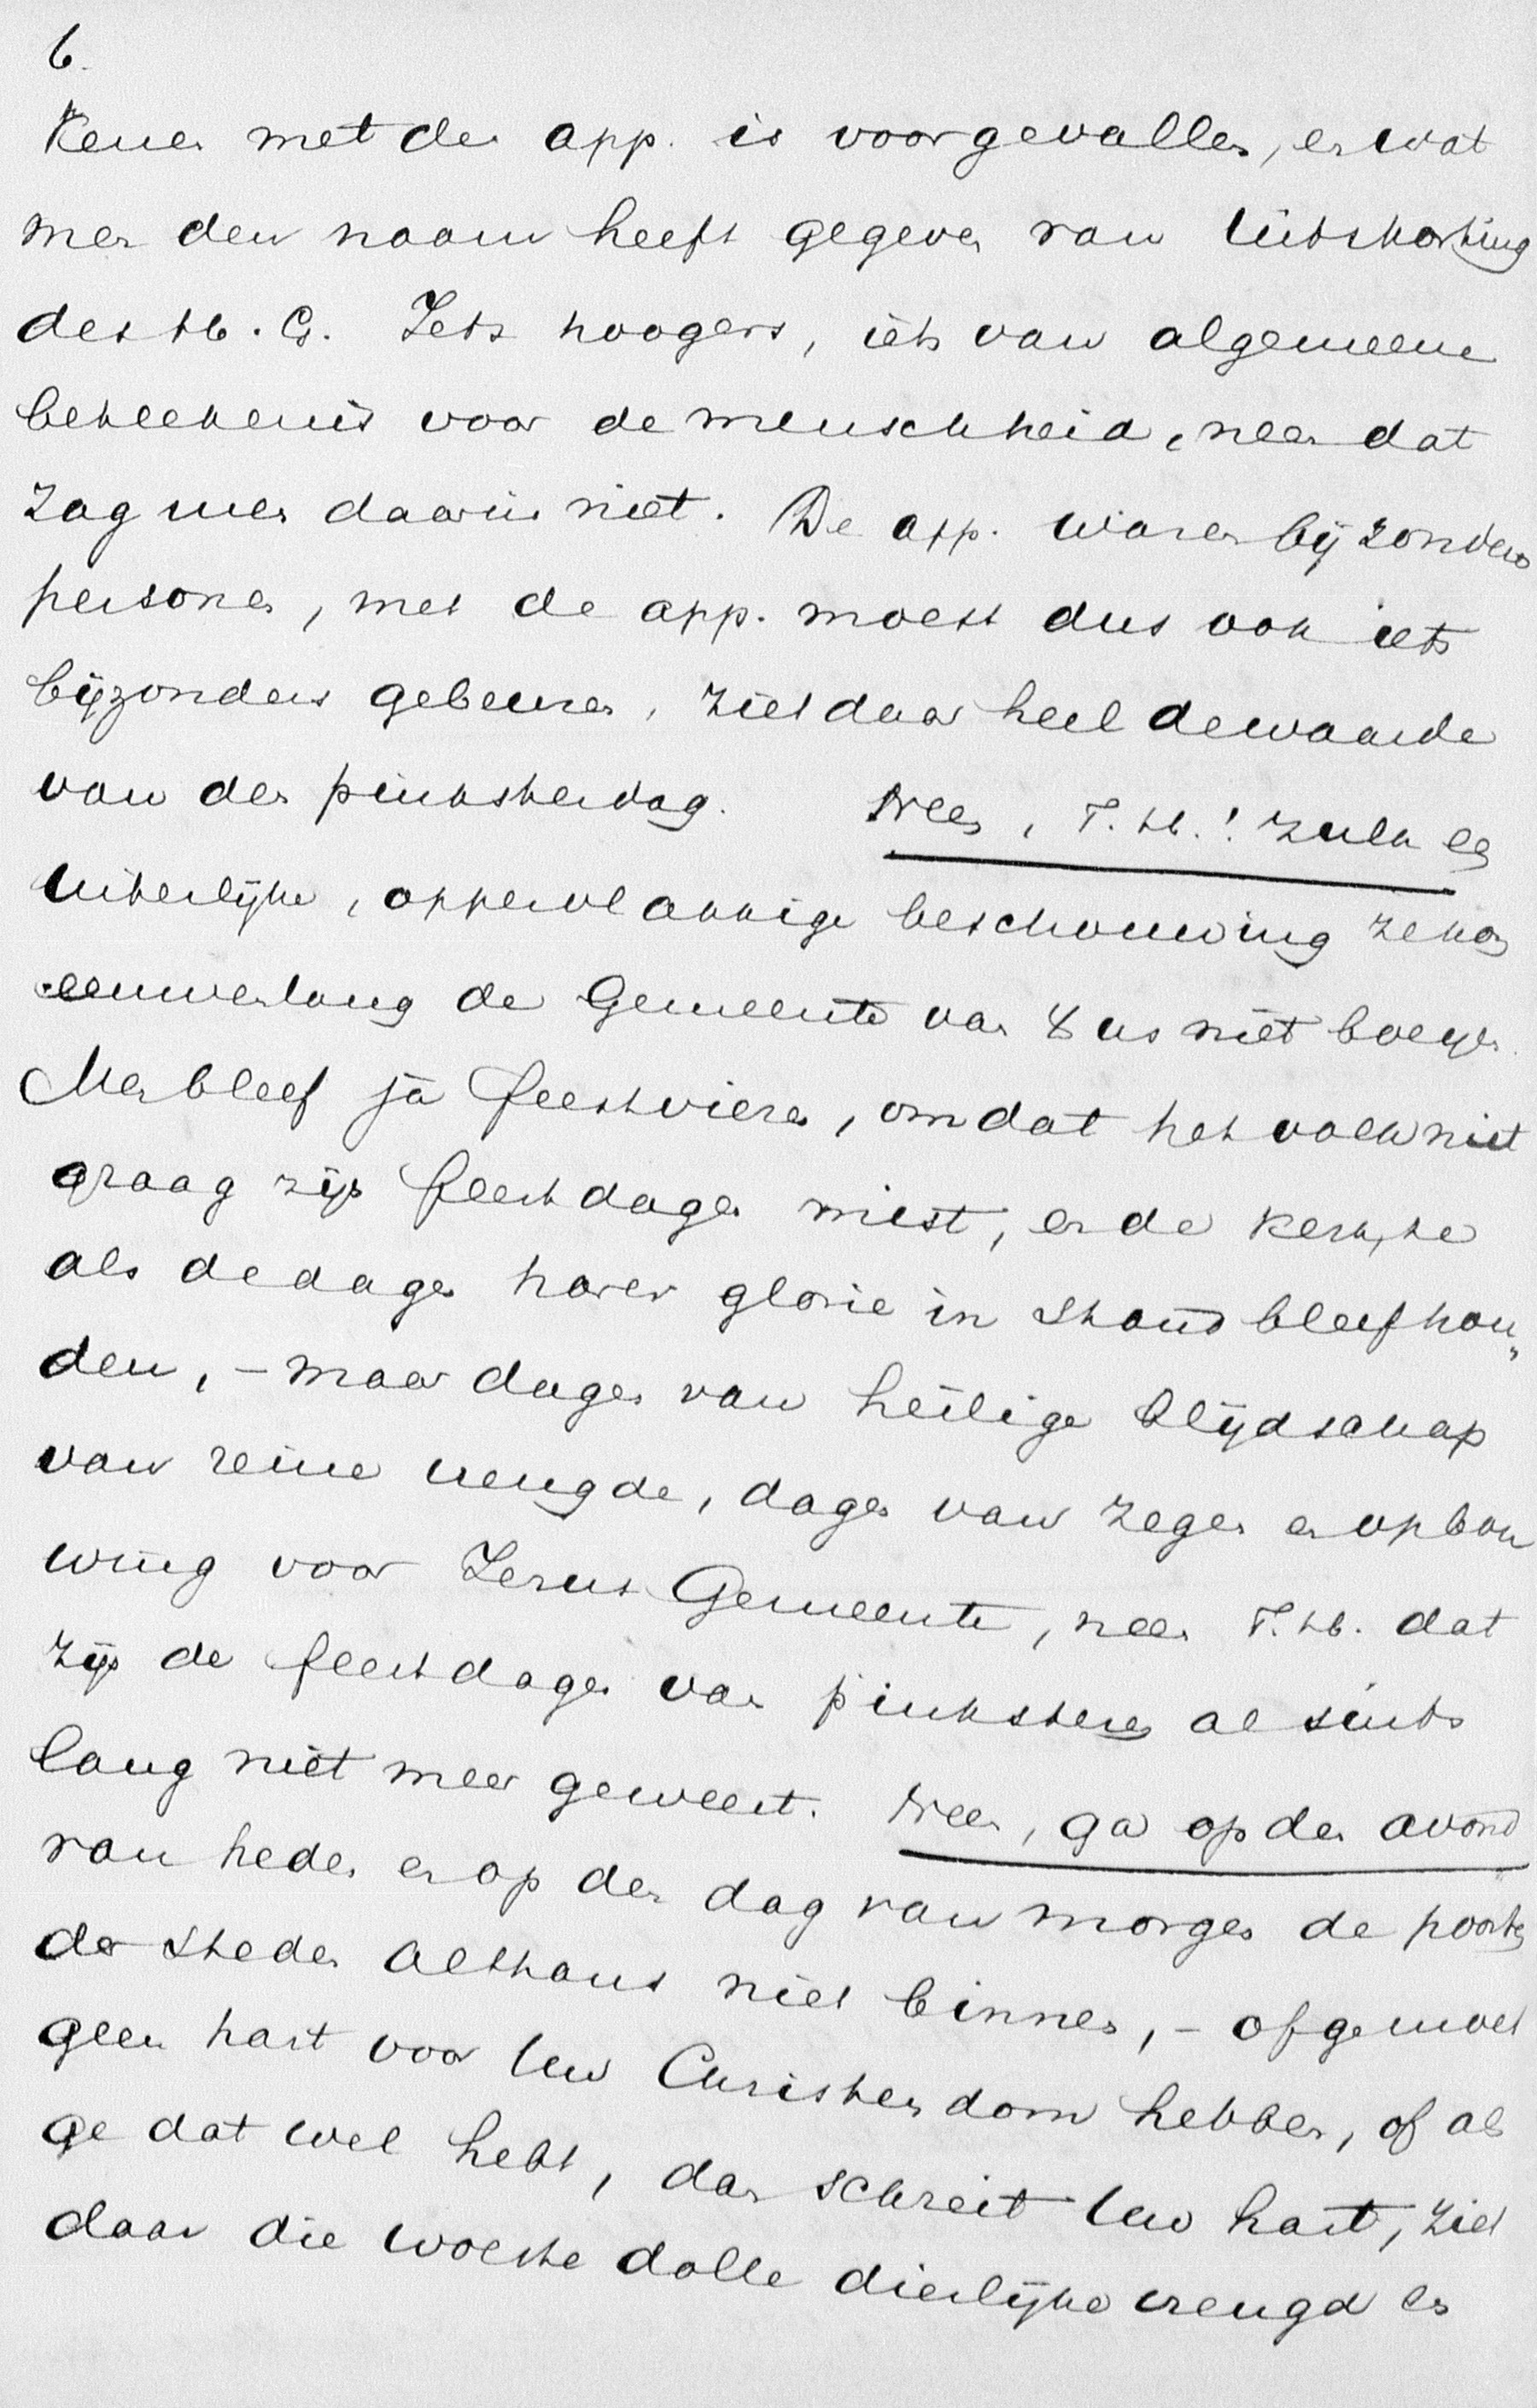 6.
keren met den app. is voorgevallen, en wat
men den naam heeft gegeven van Uitstorting
des H. G. Iets hoogers, iets van algemeene
beteekenis voor de menschheid, neen dat
zag men daarin niet. De app. waren bijzondere
personen, met de app. moest dus ook iets
bijzonders gebeuren, ziet daar heel de waarde
van den pinksterdag. Neen, T. H.! zulk een
uiterlijke, oppervlakkige beschouwing zekon
eeuwenlang de Gemeente van Xus niet boeijen.
Men bleef ja feestvieren, omdat het volk niet
graag zijn feestdagen mist, en de kerk, he
als de dagen harer glorie in stand bleef hou„
den, – maar dagen van heilige blijdschap
van reine vreugde, dagen van zegen en opbou
wing voor Jezus Gemeente, neen T. H. dat
zijn de feestdagen van pinksteren al sints
lang niet meer geweest. Neen, ga op den avond
van heden en op den dag van morgen de poorten
der steden althans niet binnen, – of ge moet
geen hart voor Uw Christendom hebben, of als
ge dat wel hebt, dan schreit Uw hart, ziet
daar die woeste dolle dierlijke vreugd en